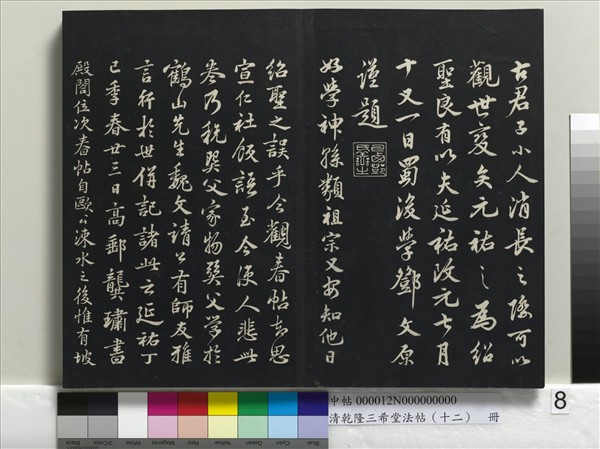 古君子小人消長之際可以
觀世變矣元祐之為紹
聖良有以夫延祐改元七月
十又一日蜀後學鄧文原
謹題
好學神孫類祖宗又安知他日
紹聖之誤乎今觀春帖而思
宣仁社飯語至今使人悲此
卷乃稅巽父家物巽父學於
鶴山先生魏文靖公有師友雅
言行於世併記諸此云延祐丁
巳季春廿三日高郵龔璛書
殿閣位次春帖自歐公涑水之後惟有坡
中帖 000012N000000000
清乾隆三希堂法帖(十二) 冊
8
Black
3/Color
White
Magenta
Red
Yellow
Green
Cyan
Blue